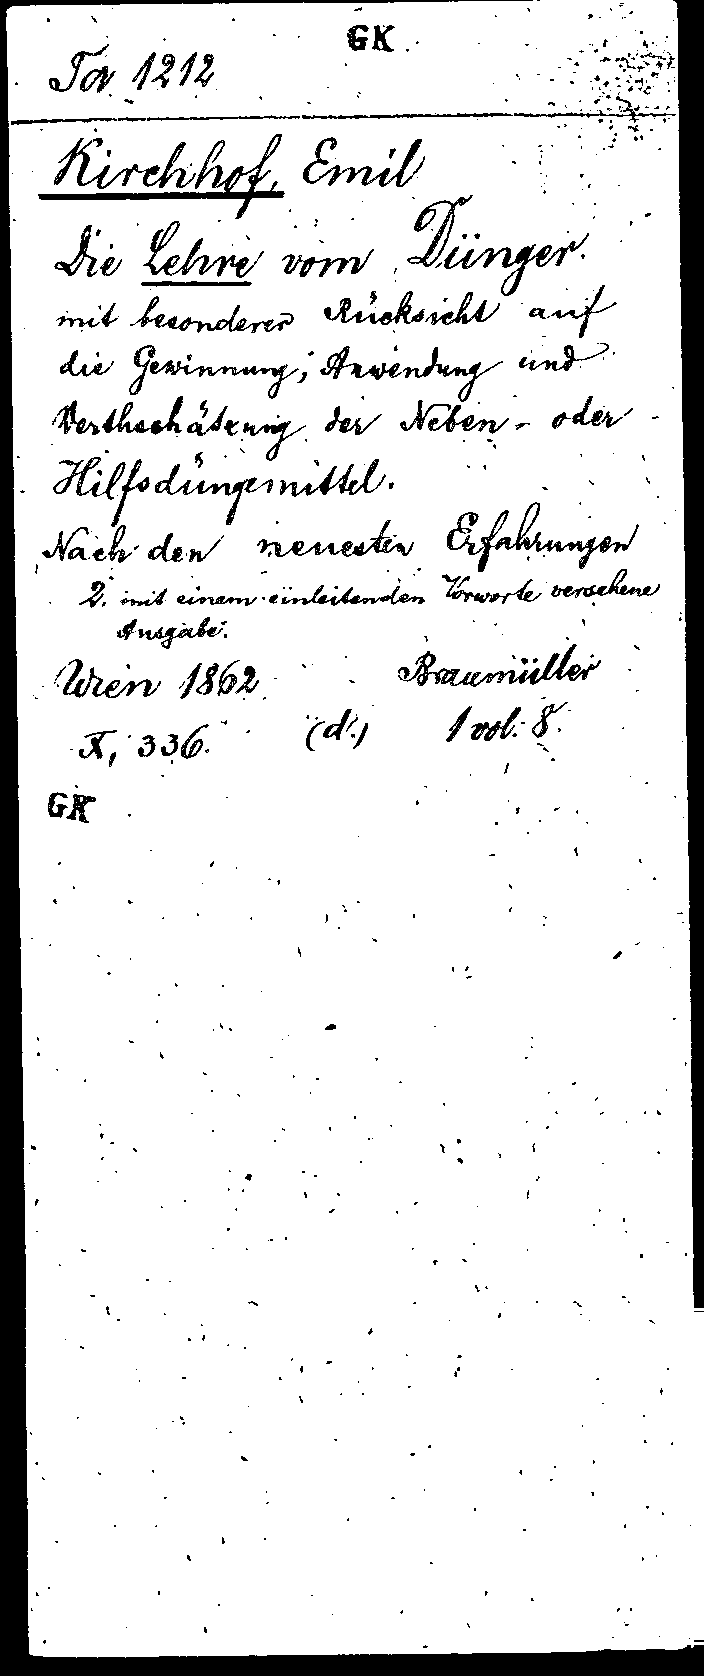 GK
Ta 1212
Kirchhof, Emil
Die Lehre vom Dünger.
mit besonderer Rücksicht auf
die Gewinnung, Anwendung und
Werthschätzung der Neben- oder
Hilfsdüngemittel.
Nach den neuesten Erfahrungen
2. mit einem einleitenden Vorworte versehene
Ausgabe.
Wien 1862 Braumüller
X, 336. (d.) 1 vol. 8.
GK